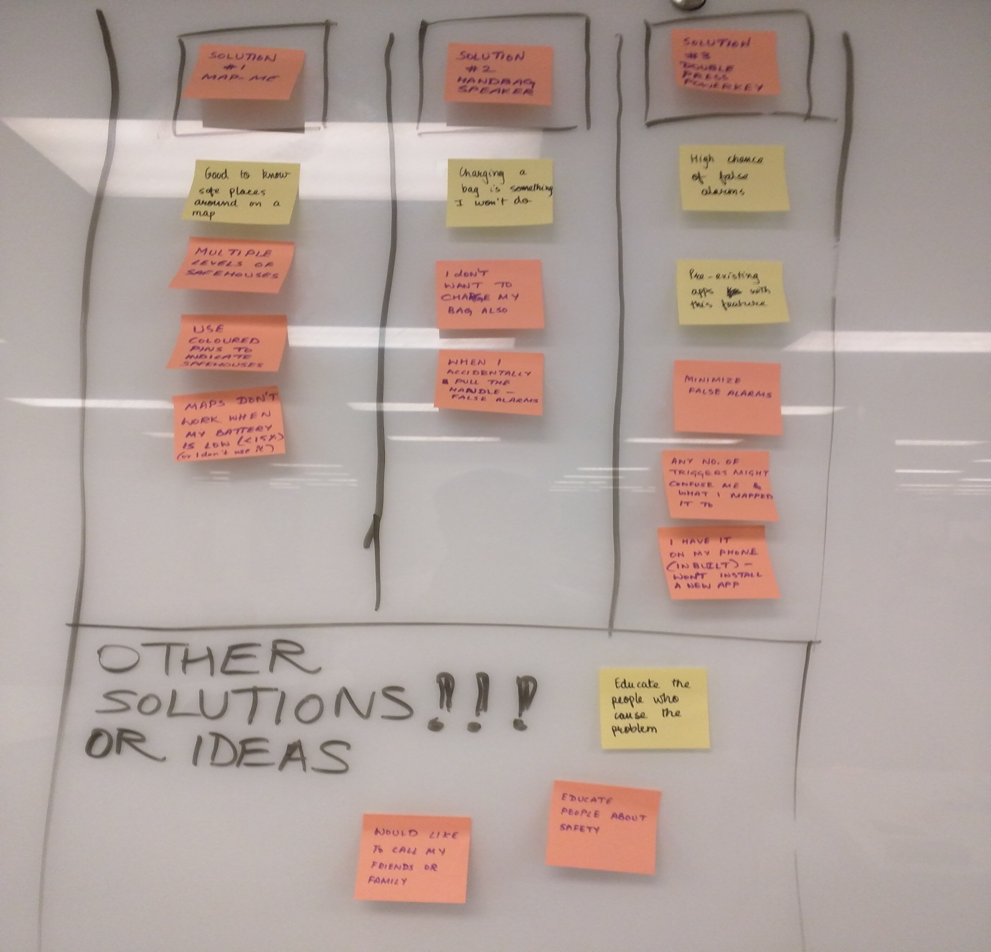 SOLUTION
#1
MAP-ME
Good to know
safe places
around on a
map
MULTIPLE
LEVELS OF
SAFEHOUSES
USE
COLOURED
PINS TO
INDICATE
SAFEHOUSES
MAPS DON'T
WORK WHEN
MY BATTERY
IS LOW (<15%)
(or I don't use it)
SOLUTION
#2
HANDBAG
SPEAKER
Charging a
bag is something
I won't do
I DON'T
WANT TO
CHARGE MY
BAG ALSO
WHEN I
ACCIDENTALLY
PULL THE
HANDLE –
FALSE ALARMS
SOLUTION
#3
DOUBLE
PRESS
POWERKEY
High chance
of false
alarms
Pre-existing
apps with
this feature
MINIMIZE
FALSE ALARMS
ANY NO. OF
TRIGGERS MIGHT
CONFUSE ME &
WHAT I MAPPED
IT TO
I HAVE IT
ON MY PHONE
(INBUILT) –
WON'T INSTALL
A NEW APP
OTHER
SOLUTIONS !!!
OR IDEAS
Educate the
people who
cause the
problem
EDUCATE
PEOPLE ABOUT
SAFETY
WOULD LIKE
TO CALL MY
FRIENDS OR
FAMILY